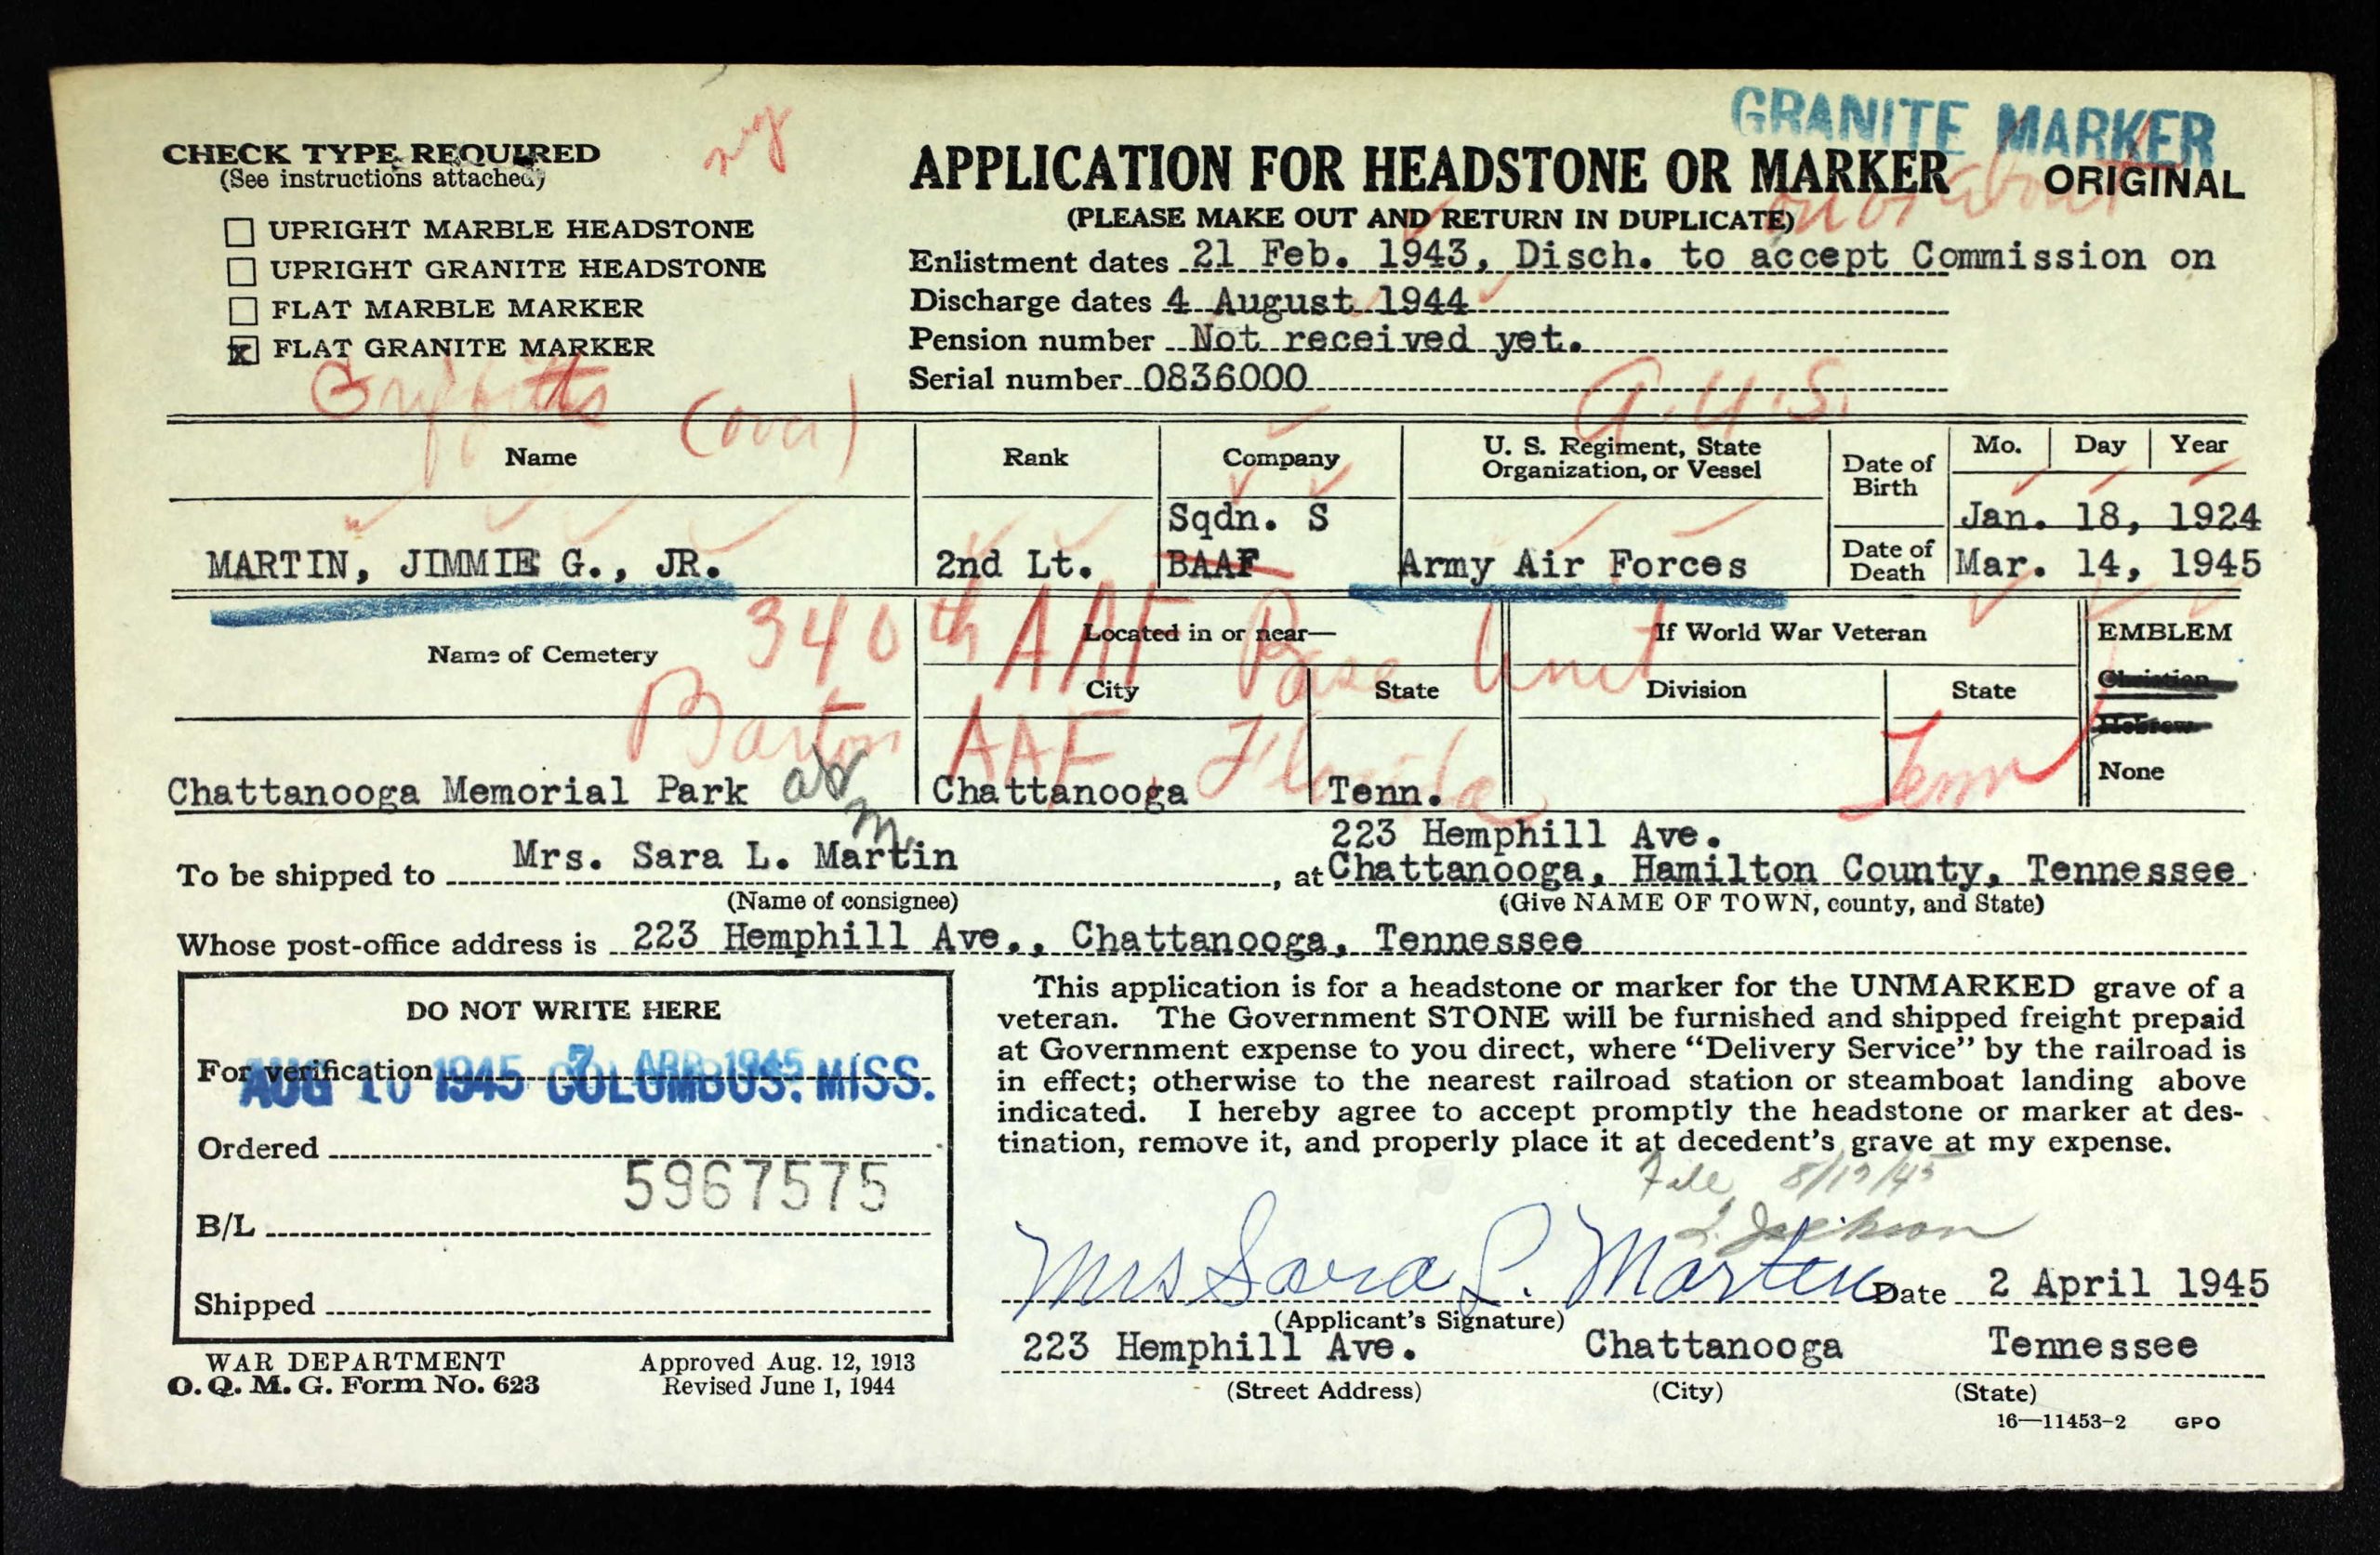 GRANITE MARKER
CHECK TYPE REQUIRED
(See instructions attached)
UPRIGHT MARBLE HEADSTONE
UPRIGHT GRANITE HEADSTONE
FLAT MARBLE MARKER
x FLAT GRANITE MARKER
APPLICATION FOR HEADSTONE OR MARKER ORIGINAL
(PLEASE MAKE OUT AND RETURN IN DUPLICATE)
Enlistment dates 21 Feb. 1943, Disch. to accept Commission on
Discharge dates 4 August 1944
Pension number Not received yet.
Serial number 0836000
Griffitts (over) A.U.S.
Name Rank Company U. S. Regiment, State Organization, or Vessel Date of Birth Mo. Day Year
Sqdn. S Jan. 18, 1924
MARTIN, JIMMIE G., JR. 2nd Lt. BAAF Army Air Forces Date of Death Mar. 14, 1945
340th AAF Base Unit
Name of Cemetery Located in or near— If World War Veteran EMBLEM
City State Division State Christian
Barton AAF, Florida Hebrew
Tenn None
Chattanooga Memorial Park Chattanooga Tenn.
223 Hemphill Ave.
To be shipped to Mrs. Sara L. Martin, at Chattanooga, Hamilton County, Tennessee
(Name of consignee) (Give NAME OF TOWN, county, and State)
Whose post-office address is 223 Hemphill Ave., Chattanooga, Tennessee
DO NOT WRITE HERE
For verification 7 APR 1945
AUG 10 1945 COLUMBUS, MISS.
Ordered
5967575
B/L
Shipped
WAR DEPARTMENT
O. Q. M. G. Form No. 623
Approved Aug. 12, 1913
Revised June 1, 1944
This application is for a headstone or marker for the UNMARKED grave of a
veteran. The Government STONE will be furnished and shipped freight prepaid
at Government expense to you direct, where “Delivery Service” by the railroad is
in effect; otherwise to the nearest railroad station or steamboat landing above
indicated. I hereby agree to accept promptly the headstone or marker at des-
tination, remove it, and properly place it at decedent's grave at my expense.
File
Jackson
Mrs Sara L. Martin Date 2 April 1945
(Applicant's Signature)
223 Hemphill Ave. Chattanooga Tennessee
(Street Address) (City) (State)
16—11453-2 GPO